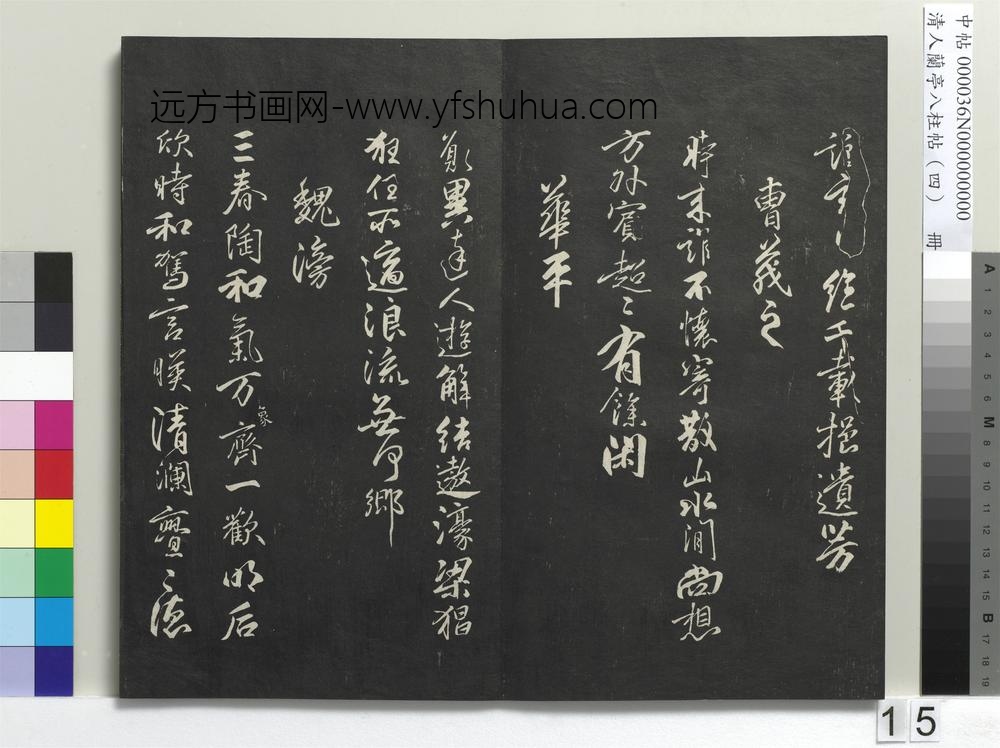 远方书画网-www.yfshuhua.com
絕千載挹遺芳
曹茂之
時来誰不懷寄散山水間尚想
方外賓超々有餘閑
華平
願與達人遊解結遨濠梁猖
狂任所適浪流無何鄉
魏滂
三春陶和氣万象齊一歡明后
欣時和駕言暎清瀾亹々德
中帖 000036N000000000
清人蘭亭八柱帖(四) 冊
A 1 2 3 4 5 6 M 8 9 10 11 12 13 14 15 B 17 18 19
15